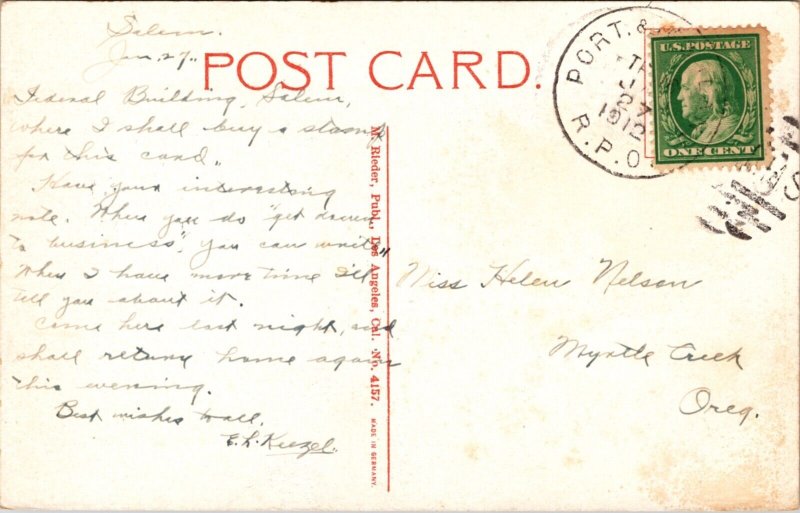 Salem.
Jan. 27.
POST CARD.
Federal Building, Salem,
where I shall buy a stamp
for this card.
Have your interesting
note. When you do "get down
to business", you can write.
When I have more time I'll
tell you about it.
Came here last night, and
shall return home again
this evening.
Best wishes to all.
E. L. Keezel.
M. Rieder, Publ., Los Angeles, Cal. No. 4157. MADE IN GERMANY.
PORT. &
27
1912
R.P.O.
U.S. POSTAGE
ONE CENT
Miss Helen Nelson
Myrtle Creek
Oreg.